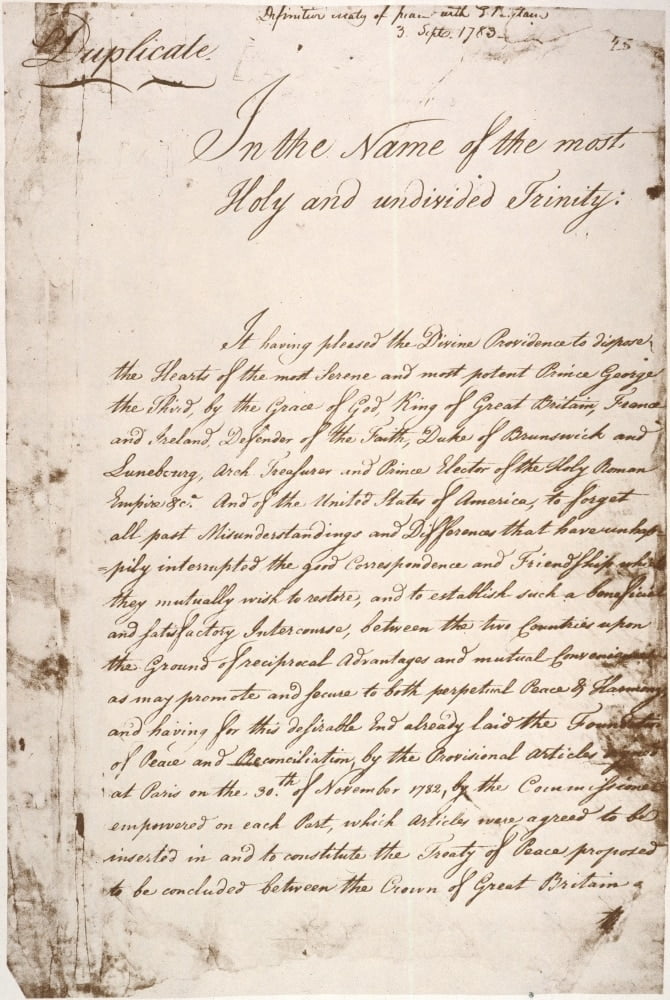 Definitive treaty of peace with G. Britain
3. Septr. 1783
Duplicate.
In the Name of the most
Holy and undivided Trinity:
It having pleased the Divine Providence to dispose
the Hearts of the most Serene and most potent Prince George
the Third, by the Grace of God, King of Great Britain, France
and Ireland, Defender of the Faith, Duke of Brunswick and
Lunebourg, Arch Treasurer and Prince Elector of the Holy Roman
Empire &c.a And of the United States of America, to forget
all past Misunderstandings and Differences that have unhap
=pily interrupted the good Correspondence and Friendship which
they mutually wish to restore; and to establish such a beneficial
and satisfactory Intercourse, between the two Countries upon
the Ground of reciprocal Advantages and mutual Convenience
as may promote and secure to both perpetual Peace & Harmony,
and having for this desirable End already laid the Foundation
of Peace and Reconciliation, by the Provisional Articles
at Paris on the 30.th of November 1782, by the Commissione
empowered on each Part, which Articles were agreed to be
inserted in and to constitute the Treaty of Peace proposed
to be concluded between the Crown of Great Britain